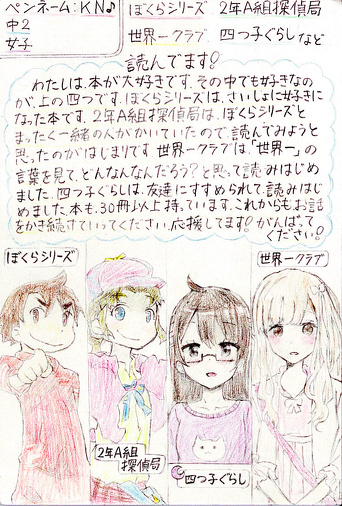 ペンネーム:KN♪
中2
女子
ぼくらシリーズ 2年A組探偵局
世界一クラブ 四つ子ぐらし など
読んでます!
わたしは、本が大好きです。その中でも好きなの
が、上の四つです。ぼくらシリーズは、さいしょに好きに
なった本です。2年A組探偵局は、ぼくらシリーズと
まったく一緒の人がかいていたので読んでみようと
思ったのがはじまりです 世界一クラブは、「世界一」の
言葉を見て、どんなんなんだろう?と思って読みはじめ
ました。四つ子ぐらしは、友達にすすめられて読みはじ
めました。本も、30冊以上持っています。これからもお話
をかき続けていってください。応援してます!がんばって
ください!
ぼくらシリーズ
世界一クラブ
2年A組
探偵局
四つ子ぐらし